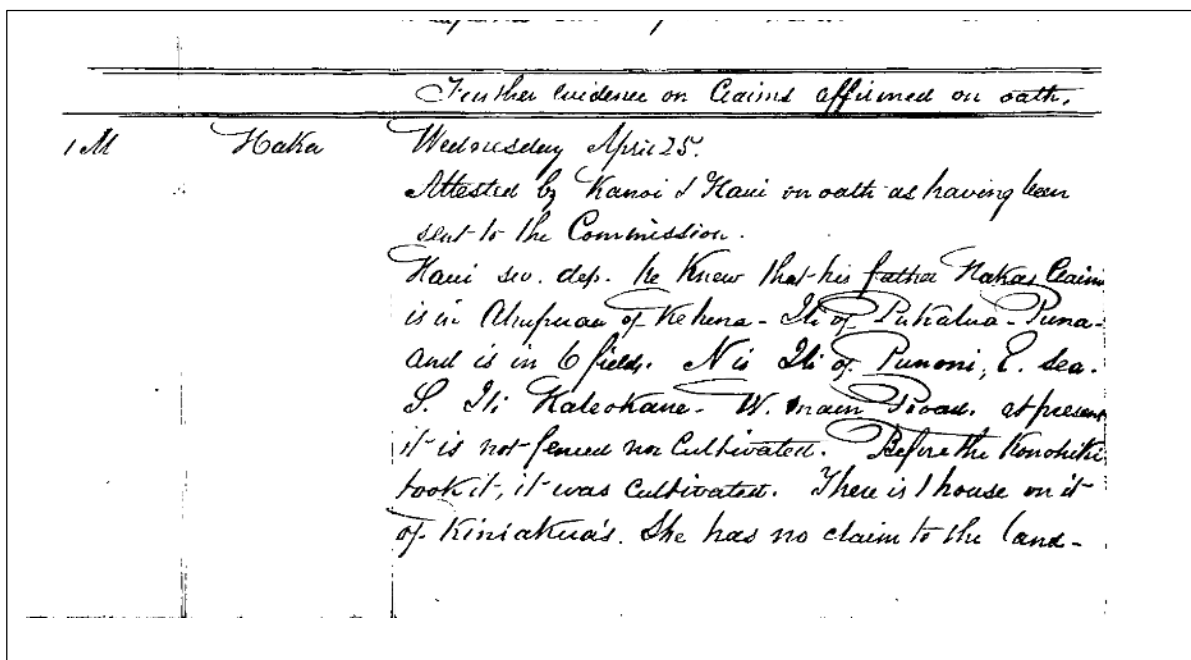 Further evidence on Claims affirmed on oath.
1 M Haka Wednesday April 25.
Attested by Kanoi & Haui on oath as having been
sent to the Commission.
Haui sw. dep. he knew that his father Hakas Claim
is in Ahupuaa of Kehena - Ili of Pukalua - Puna -
and is in 6 fields. N is Ili of Punoni, E. Sea.
S. Ili Kaleokane - W. main Road. at present
it is not fenced nor Cultivated. Before the Konohiki
took it, it was Cultivated. There is 1 house on it
of Kiniakua's. She has no claim to the land -